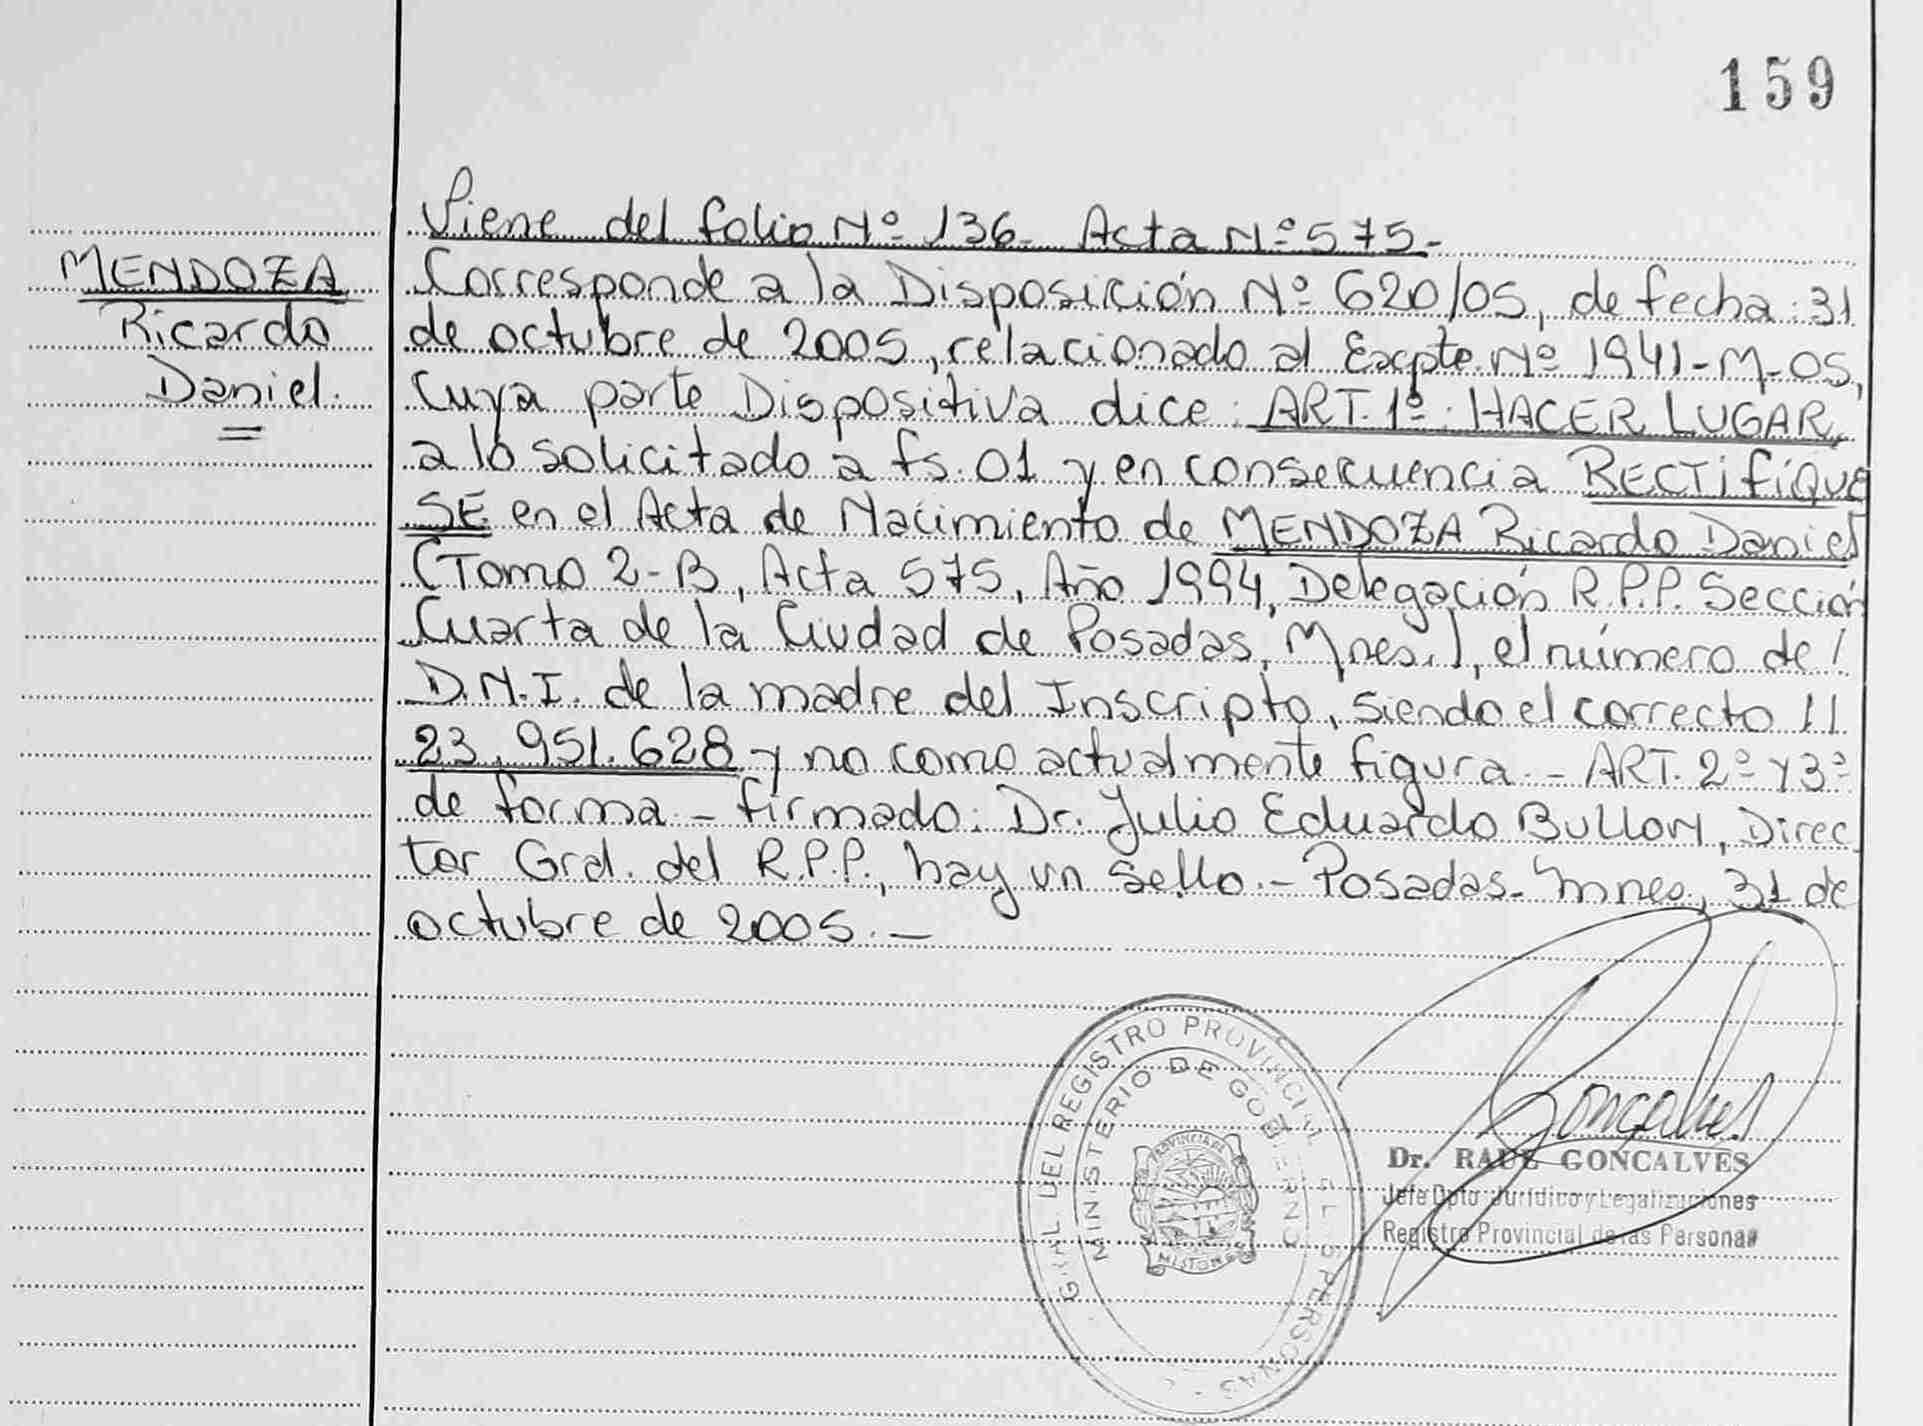 159
Viene del folio Nº 136- Acta Nº 575-
MENDOZA
Ricardo
Daniel.
=
Corresponde a la Disposición Nº 620/05, de fecha: 31
de octubre de 2005, relacionado al Expte. Nº 1941-M-05,
Cuya parte Dispositiva dice: ART. 1º: HACER LUGAR,
a lo solicitado a fs. 01 y en consecuencia RECTIFÍQUE
SE en el Acta de Nacimiento de MENDOZA Ricardo Daniel
(Tomo 2-B, Acta 575, Año 1994, Delegación R.P.P. Sección
Cuarta de la Ciudad de Posadas, Mnes.), el número de /
D.N.I. de la madre del Inscripto, siendo el correcto //
23.951.628 y no como actualmente figura.- ART. 2º y 3º
de forma - firmado: Dr. Julio Eduardo Bullon, Direc
tor Gral. del R.P.P., hay un sello.- Posadas- Mnes, 31 de
octubre de 2005.-
GRAL DEL REGISTRO PROVINCIAL PERSONAS
MINISTERIO DE GOBIERNO
PROVINCIA DE
MISIONES
Goncalves
Dr. RAUL GONCALVES
Jefe Dpto Jurídico y Legalizaciones
Registro Provincial de las Personas